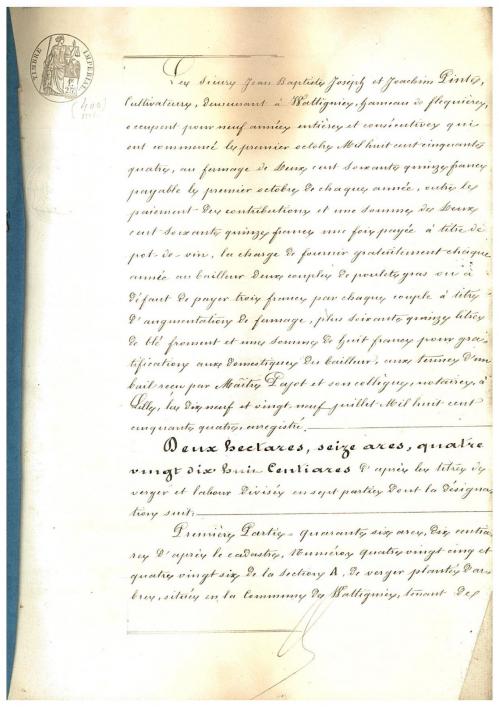 TIMBRE IMPERIAL
Les Sieurs Jean Baptiste Joseph et Joachim Pinte,
Cultivateurs, demeurant à Wattignies, hameau de flequières,
occupent pour neuf années entières et consécutives qui
ont commencé le premier octobre Mil huit cent cinquante
quatre, au fermage de Deux cent soixante quinze francs
payable le premier octobre de chaque année, outre le
paiement des contributions et une somme de Deux
cent soixante quinze francs une fois payée à titre de
pot-de-vin, la charge de fournir gratuitement chaque
année au bailleur deux couples de poulets gras ou à
défaut de payer trois francs par chaque couple à titre
d'augmentation de fermage, plus soixante quinze litres
de blé froment et une somme de huit francs pour gra-
tification aux domestiques du bailleur, aux termes d'un
bail reçu par Maître Pajot et son collègue, notaires, à
Lille, les dix neuf et vingt neuf juillet Mil huit cent
cinquante quatre, enregistré.
Deux hectares, seize ares, quatre
vingt dix huit Centiares d'après les titres de
verger et labour divisés en sept parties dont la désigna-
tion suit:
Première Partie = quarante six ares, dix centia-
res d'après le cadastre, Numéros quatre vingt cinq et
quatre vingt six de la section A, de verger planté d'ar-
bres, située en la Commune de Wattignies, tenant de